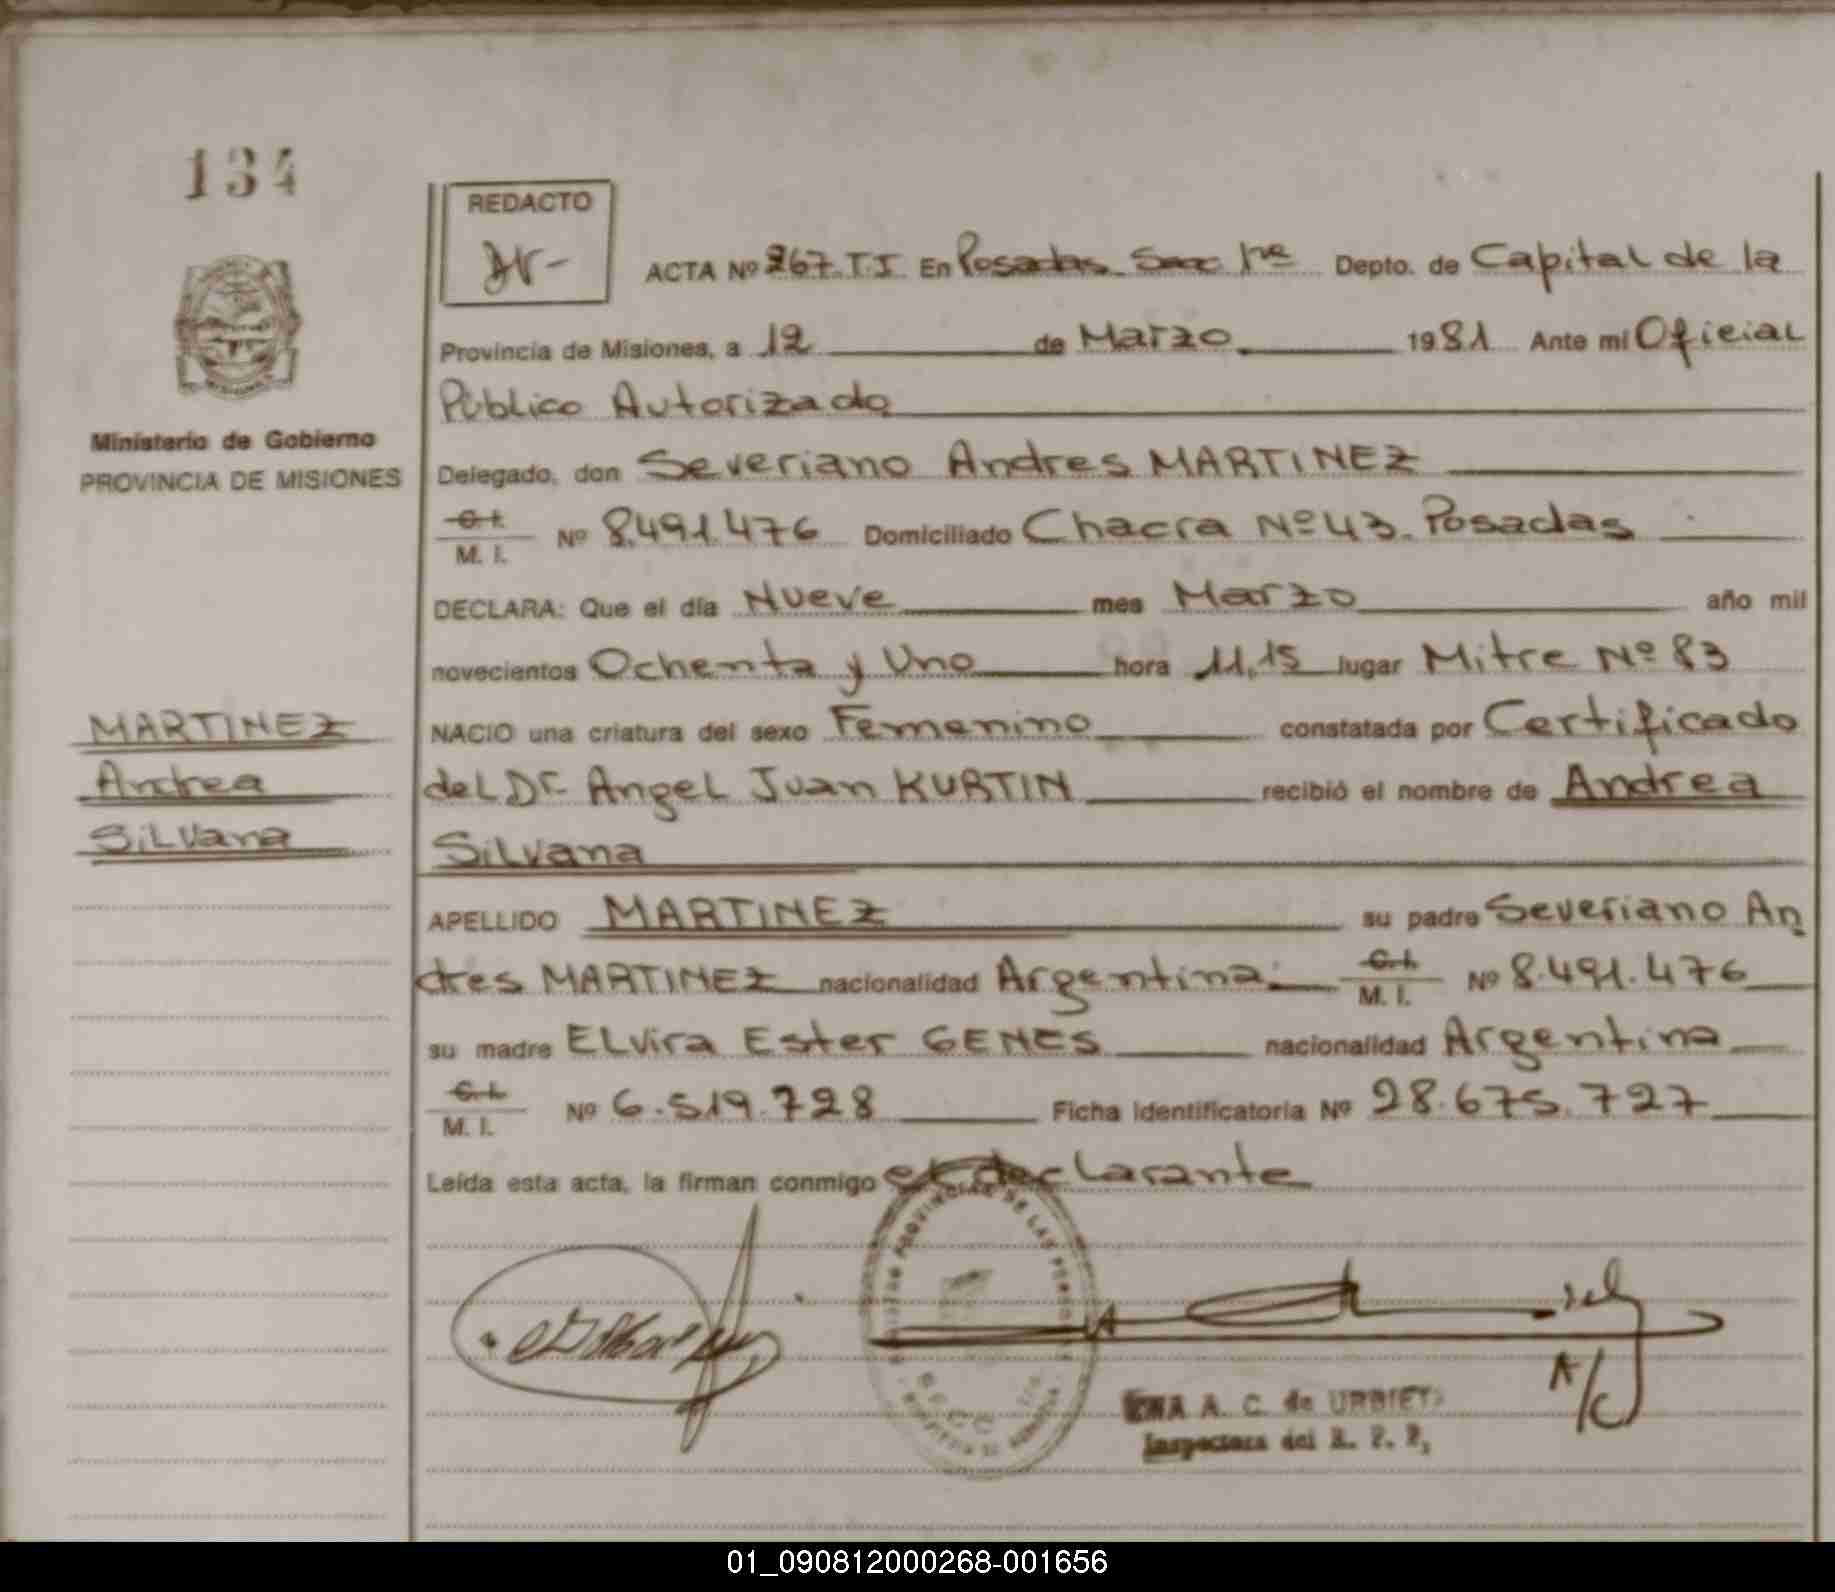 134
REDACTO
ACTA Nº 267. T. I. En Posadas Secc 1ra Depto. de Capital de la
Provincia de Misiones, a 12 de Marzo 1981 Ante mi Oficial
Público Autorizado
Ministerio de Gobierno
PROVINCIA DE MISIONES
Delegado, don Severiano Andres MARTINEZ
C.I.
M. I. Nº 8.491.476 Domiciliado Chacra Nº 43. Posadas
DECLARA: Que el día Nueve mes Marzo año mil
novecientos Ochenta y Uno hora 11,15 lugar Mitre Nº 83
NACIO una criatura del sexo Femenino constatada por Certificado
del Dr. Angel Juan KURTIN recibió el nombre de Andrea
Silvana
MARTINEZ
Andrea
Silvana
APELLIDO MARTINEZ su padre Severiano An
dres MARTINEZ nacionalidad Argentina. C.I.
M. I. Nº 8.491.476
su madre Elvira Ester GENES nacionalidad Argentina
C.I.
M. I. Nº 6.519.728 Ficha identificatoria Nº 28.675.727
Leída esta acta, la firman conmigo el declarante
PROVINCIAL DE LAS PERSONAS
A/C
A. C. de URBIETA
Inspectora del R. P. P.
01_090812000268-001656